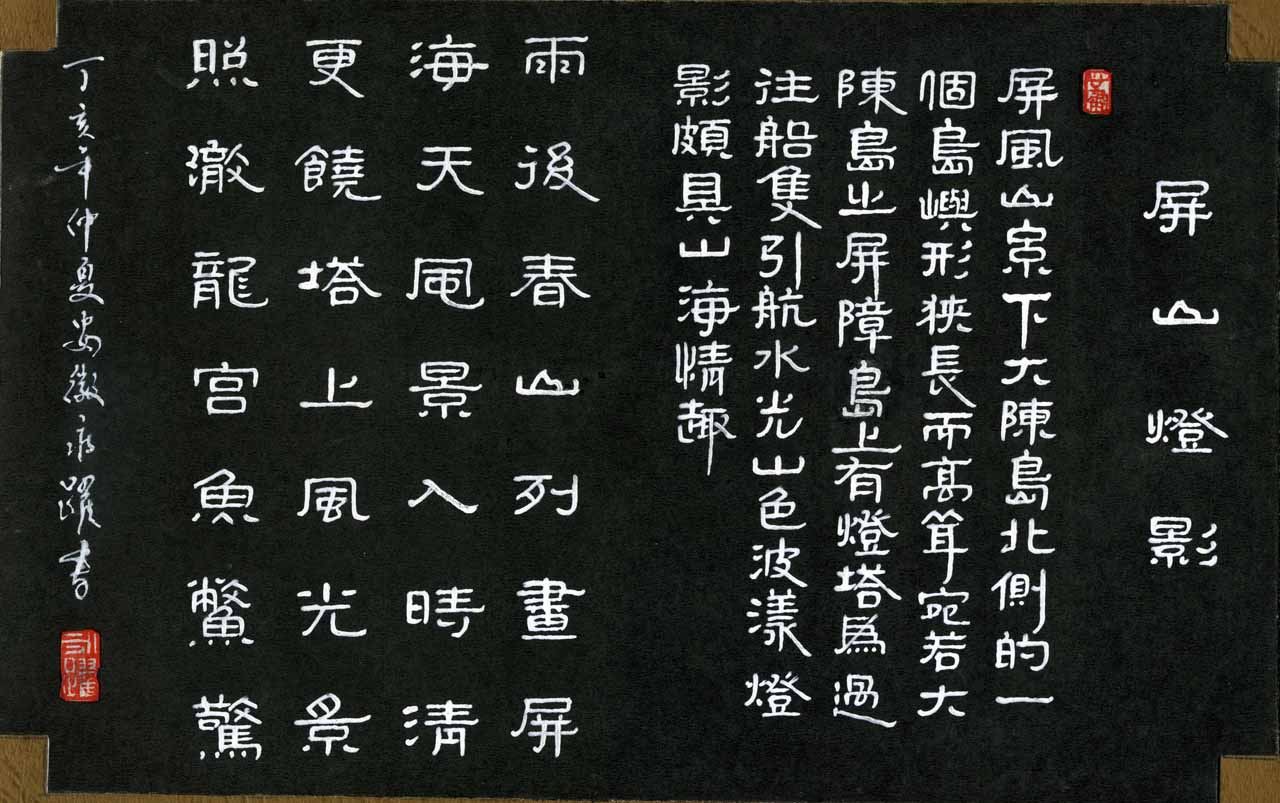 屏山燈影
屏風山島下大陳島北側的一
個島嶼形狹長而高聳宛若大
陳島之屏障島上有燈塔為過
往船隻引航水光山色波漾燈
影頗具山海情趣
雨後春山列畫屏
海天風景入時清
更饒塔上風光景
照澈龍宮魚鱉驚
丁亥年仲夏安徽 躍書